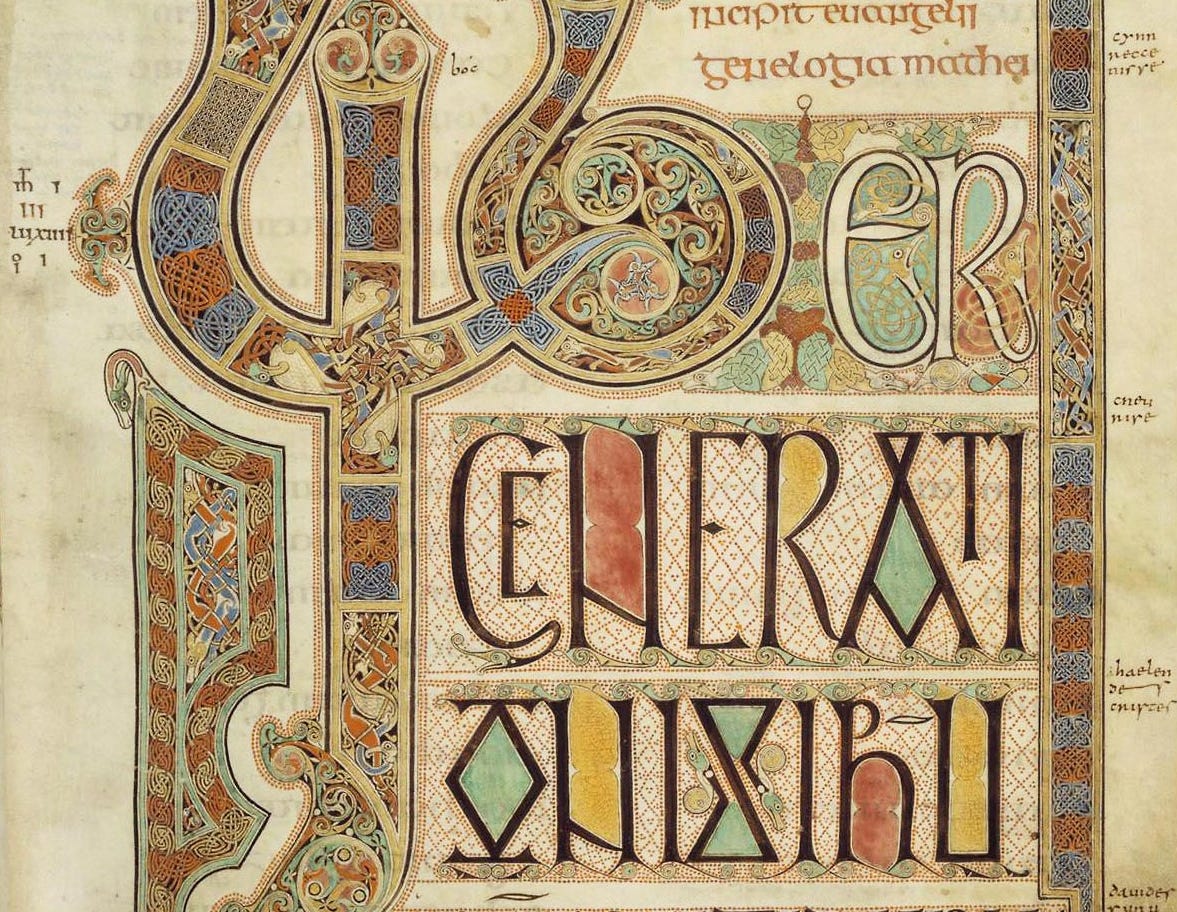 incipit euangelii
genelogia mathei
boc
LIBER
cynn
recce
nisse
GENERATI
ONIS IHU
haelen
de
cristes
dauides